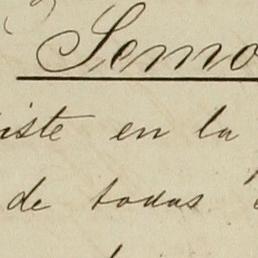 Semo
iste en la
de todas